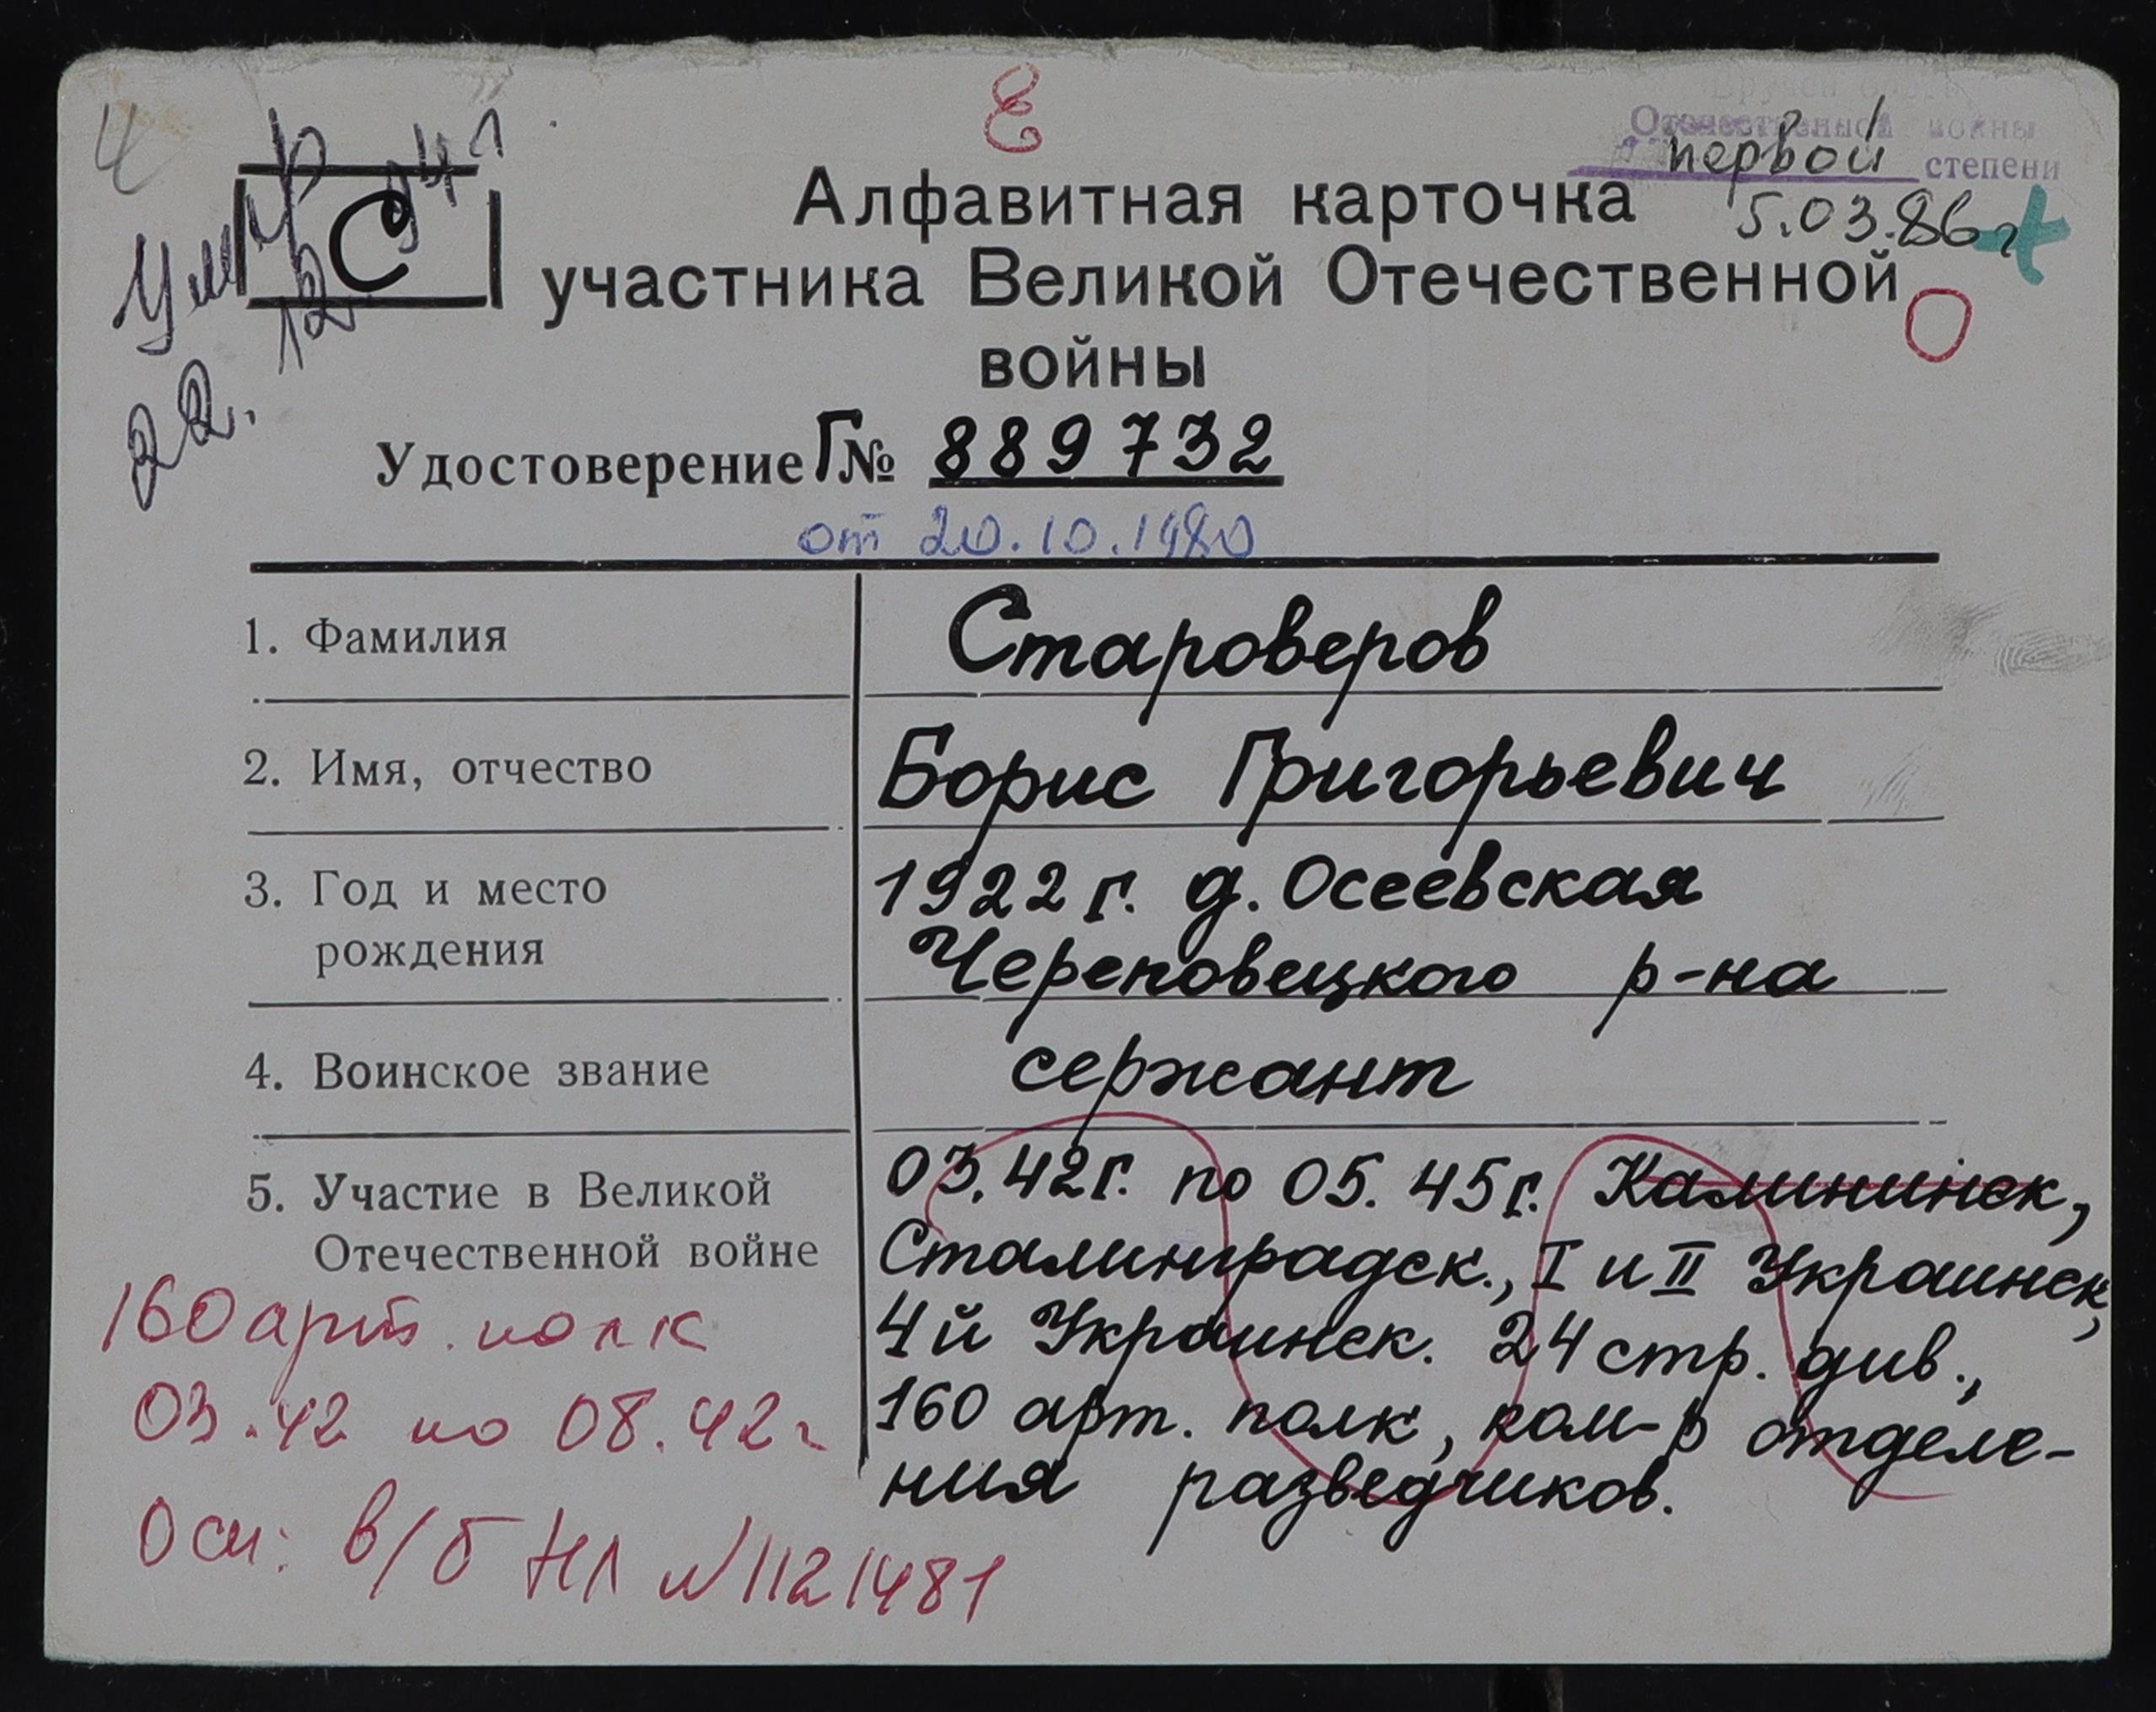 4
Е
Умер
22.12.94 г
С
Вручен орден
Отечественной войны
первой степени
5.03.86 г
Алфавитная карточка
участника Великой Отечественной
О
войны
Удостоверение Г№ 889732
от 20.10.1980
1. Фамилия Староверов
2. Имя, отчество Борис Григорьевич
3. Год и место 1922 г. д. Осеевская
рождения Череповецкого р-на
4. Воинское звание сержант
5. Участие в Великой 03.42г. по 05.45г. Калининск,
Отечественной войне Сталинградск., I и II Украинск,
160 арт. полк 4й Украинск. 24 стр. див.,
03.42 по 08.42 г 160 арт. полк, ком-р отделе-
ния разведчиков.
Осн: в/б НЛ №1121481